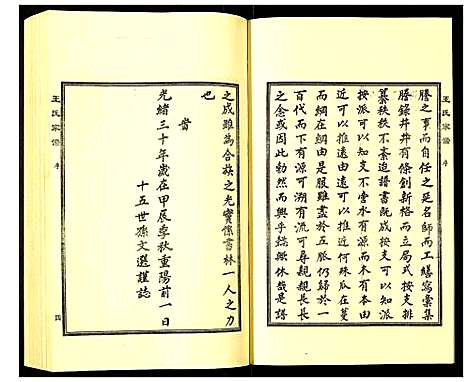 王氏家譜 序
謄之事而自任之延名師而工繕寫彙集
謄錄井井有條創新格而立局式按支排
纂秩秩不紊迨譜書既成按支可以知派
按派可以知支不啻水有源而木有本由
近可以推遠由遠可以推近何殊瓜在蔓
而綱在網由是服雖盡於五脈仍歸於一
百代而下有源可溯有流可尋親親長長
之念或因此勃然而興乎猗歟休哉是譜
之成雖為合族之光實係書林一人之力
也
時
光緒三十年歲在甲辰季秋重陽前一日
十五世孫文選謹誌
王氏家譜 序
四